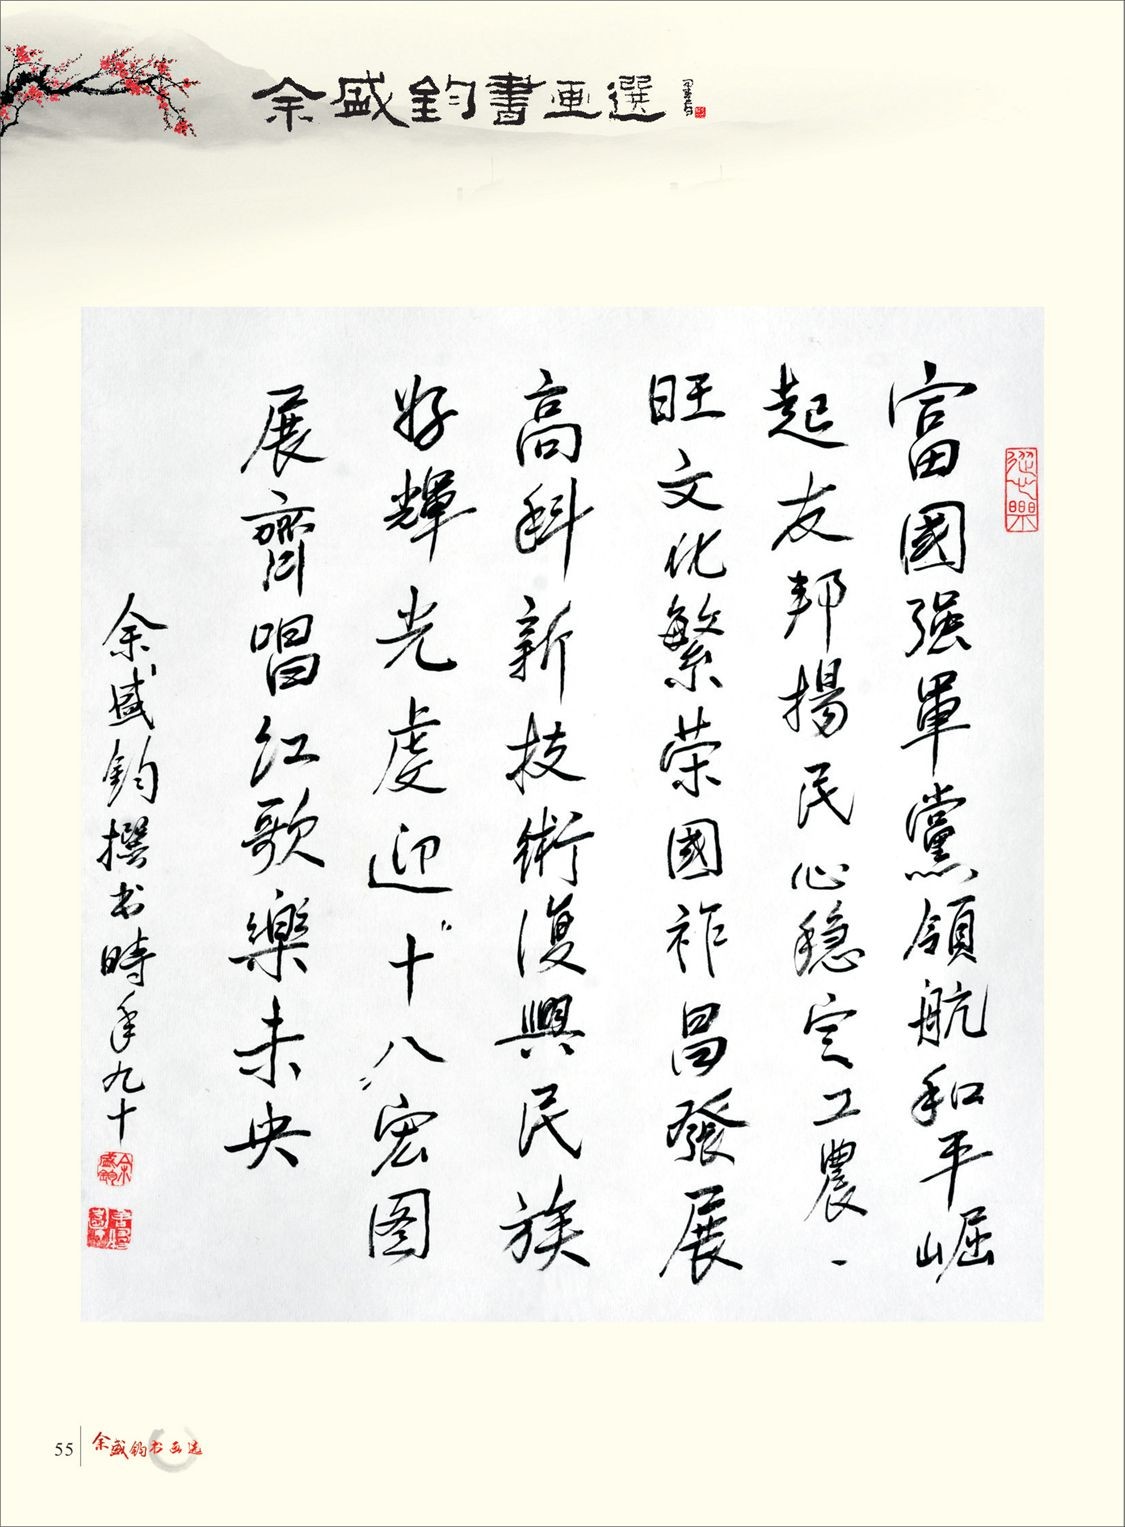 余盛鈞書画選
富國强軍黨領航和平崛
起友邦揚民心穩定工農、
旺文化繁荣國祚昌發展
高科新技術復興民族
好輝光虔迎“十八”宏图
展齊唱红歌樂未央
余盛鈞撰书時年九十
55
余盛鈞书画选